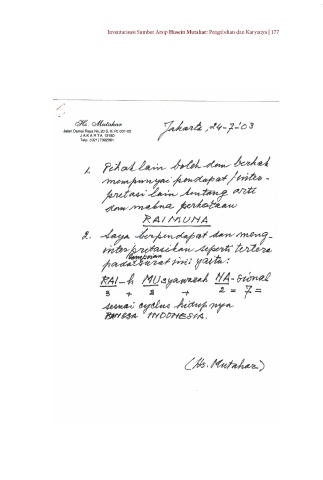 Inventarisasi Sumber Arsip Husein Mutahar: Pengabdian dan Karyanya | 177
Hs. Mutahar
Jalan Damai Raya No. 20
JAKARTA
Jakarta, 24-7-'03
1. Pihak lain boleh dan berhak
mempunyai pendapat / inter-
pretasi lain tentang arti
dan makna perkataan
RAIMUNA
2. Saya berpendapat dan meng-
interpretasikan seperti tertera
lampiran
pada surat ini yaitu:
RAI-h MUsyawarah NA-sional
3 + 2 + 2 = 7 =
sesuai cyclus hidupnya
BANGSA INDONESIA.
(Hs. Mutahar)